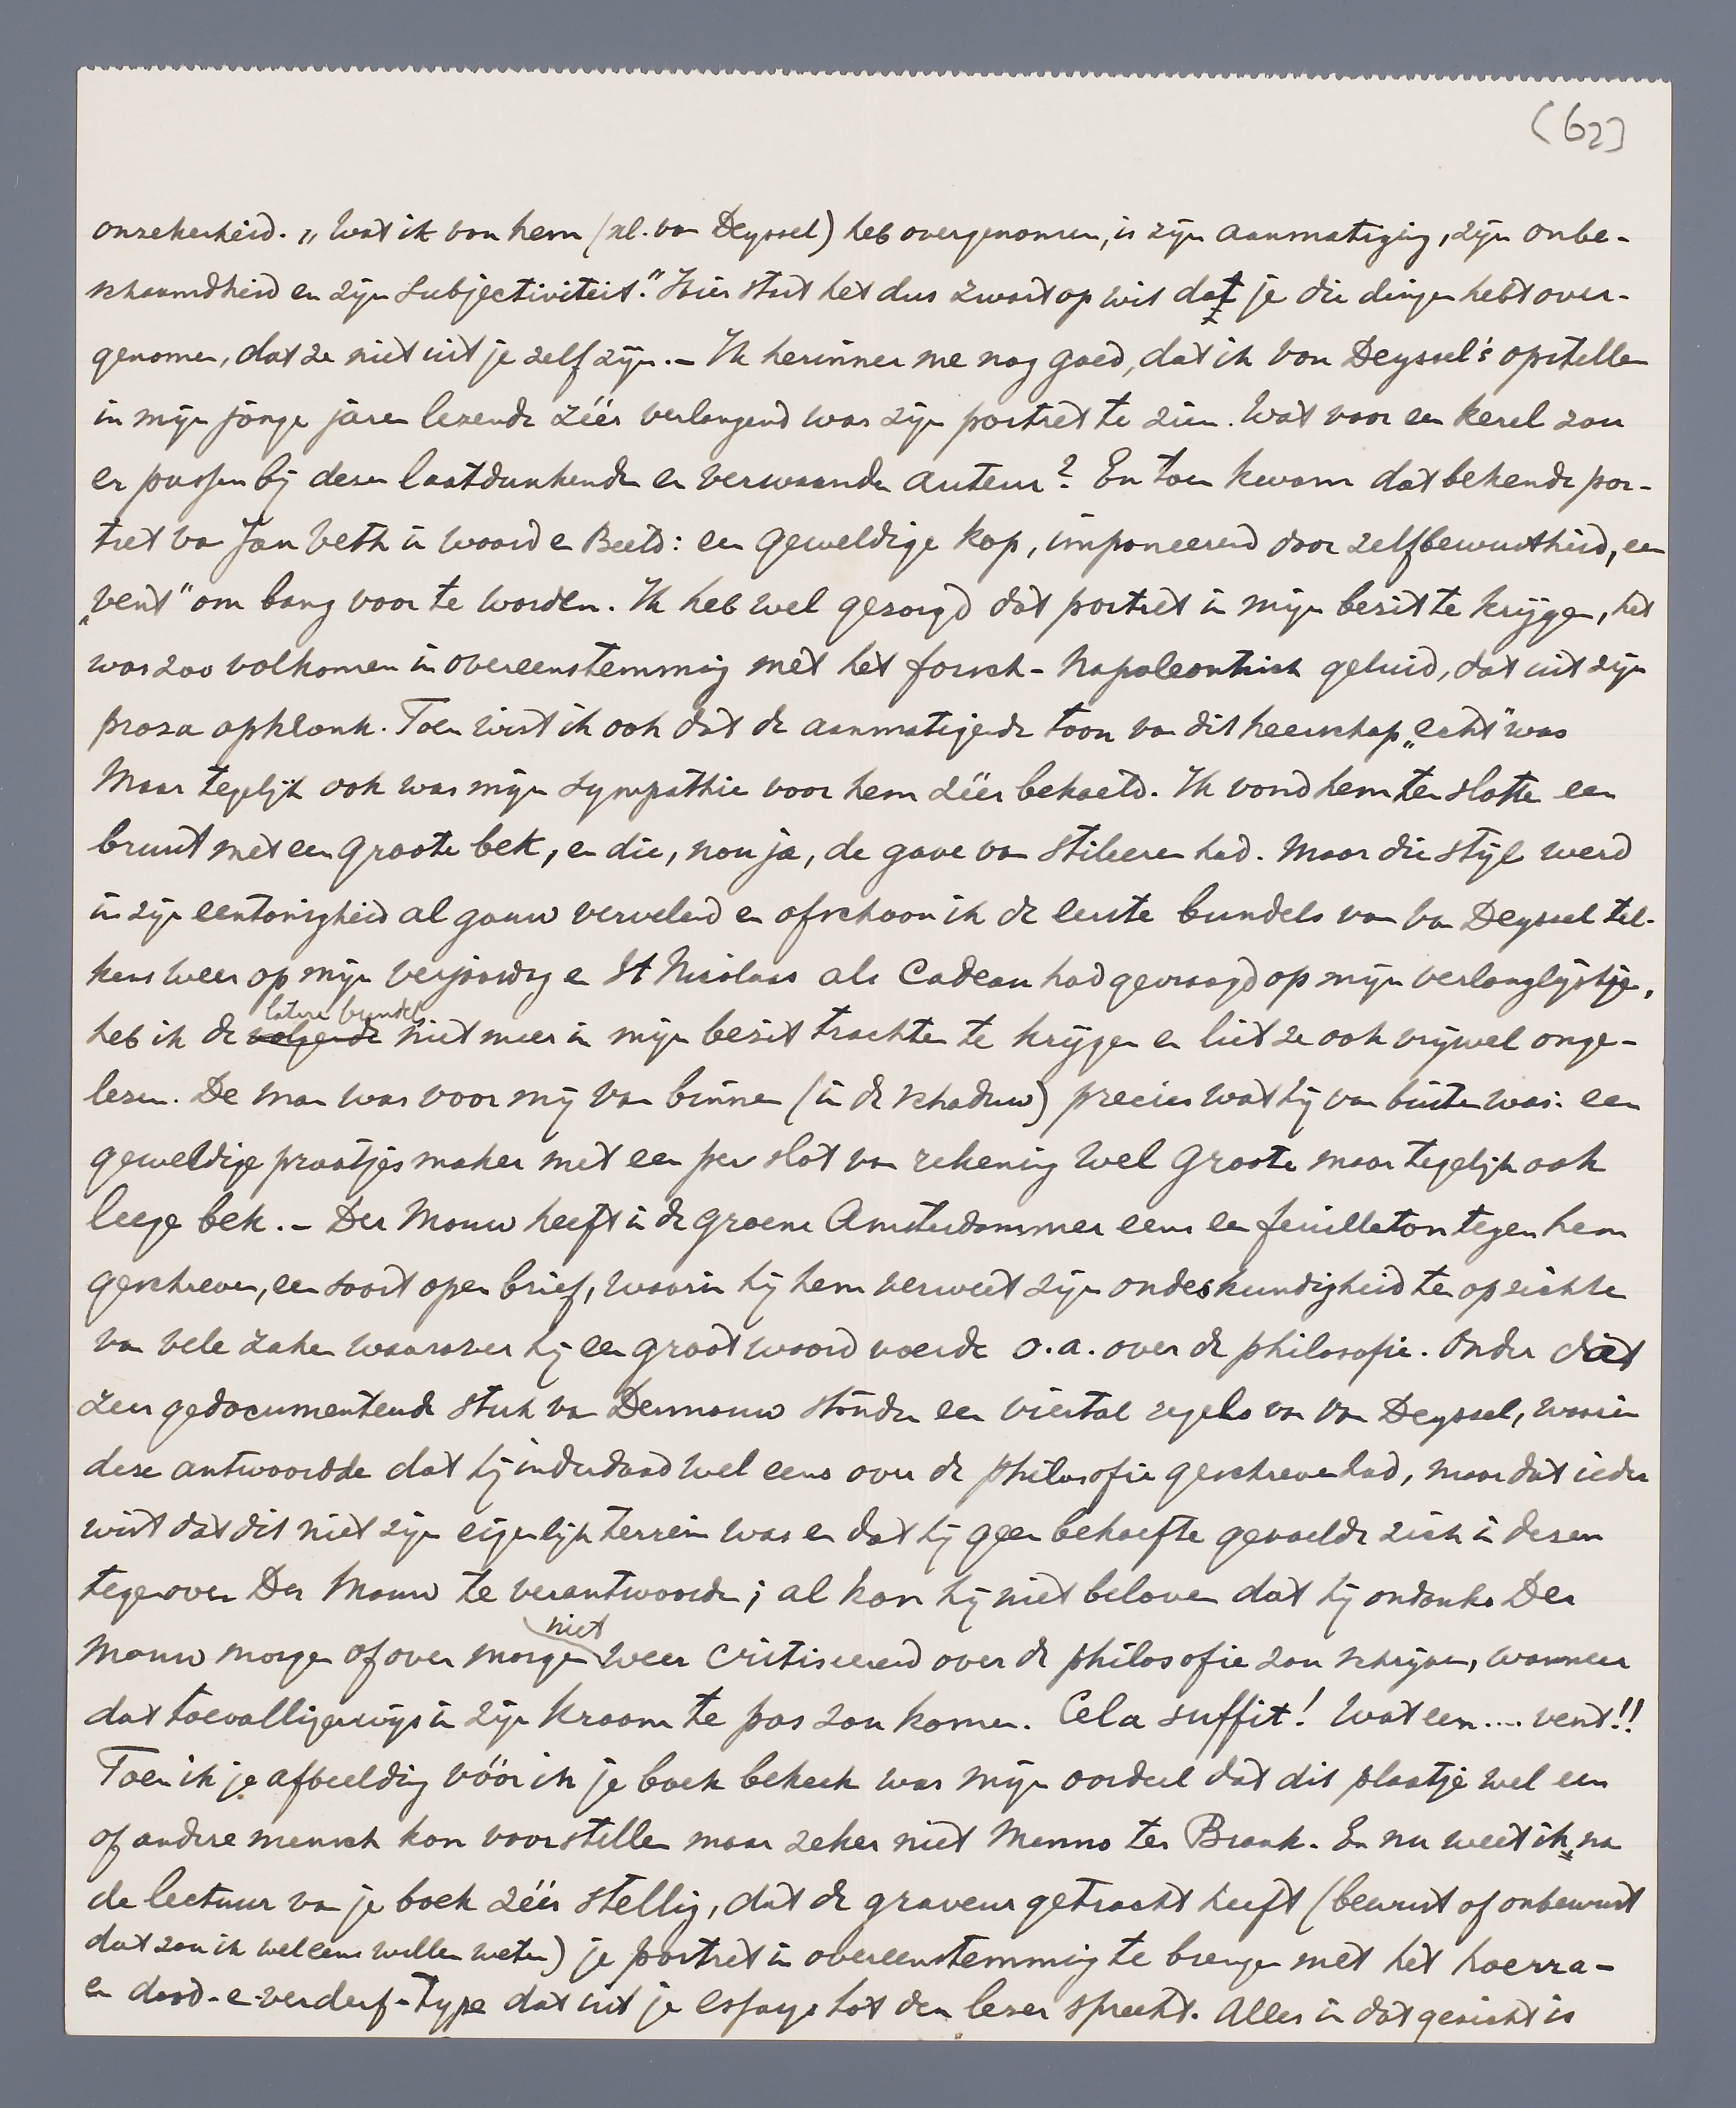 (62)
onzekerheid. „Wat ik van hem (nl. van Deyssel) heb overgenomen, is zijn aanmatiging, zijn onbe-
schaamdheid en zijn subjectiviteit." Hier staat het dus zwart op wit dat je die dingen hebt over-
genomen, dat ze niet uit je zelf zijn. – Ik herinner me nog goed, dat ik van Deyssel's opstellen
in mijn jonge jaren lezende zéér verlangend was zijn portret te zien. Wat voor een kerel zou
er passen bij dezen laatdunkenden en verwaanden auteur? En toen kwam dat bekende por-
tret van Jan Veth in Woord en Beeld: een geweldige kop, imponeerend door zelfbewustheid, een
„vent" om bang voor te worden. Ik heb wel gezorgd dat portret in mijn bezit te krijgen, het
was zoo volkomen in overeenstemming met het forsch-Napoleontisch geluid, dat uit zijn
proza opklonk. Toen wist ik ook dat de aanmatigende toon van dit heerschap „echt" was
Maar tegelijk ook was mijn sympathie voor hem zéér bekoeld. Ik vond hem ten slotte een
bruut met een groote bek, en die, nou ja, de gave van stileeren had. Maar die stijl werd
in zijn eentonigheid al gauw vervelend en ofschoon ik de eerste bundels van van Deyssel tel-
kens weer op mijn verjaardag en St Nicolaas als cadeau had gevraagd op mijn verlanglijstje,
heb ik de volgende latere bundels niet meer in mijn bezit trachten te krijgen en liet ze ook vrijwel onge-
lezen. De man was voor mij van binnen (in de schaduw) precies wat hij van buiten was: een
geweldige praatjesmaker met een per slot van rekening wel groote maar tegelijk ook
leege bek. – Der Mouw heeft in de groene Amsterdammer eens een feuilleton tegen hem
geschreven, een soort open brief, waarin hij hem verweet zijn ondeskundigheid ten opzichte
van vele zaken waarover hij een groot woord voerde o.a. over de philosofie. Onder dàt
zeer gedocumenteerde stuk van Dermouw stonden een viertal regels van van Deyssel, waarin
deze antwoordde dat hij inderdaad wel eens over de philosofie geschreven had, maar dat ieder
wist dat dit niet zijn eigenlijk terrein was en dat hij geen behoefte gevoelde zich in dezen
tegenover Der Mouw te verantwoorden; al kon hij niet beloven dat hij ondanks Der
Mouw morgen of over morgen niet weer critiseerend over de philosofie zou schrijven, wanneer
dat toevalligerwijs in zijn kraam te pas zou komen. Cela suffit! Wat een .... vent!!
Toen ik je afbeelding vóór ik je boek bekeek was mijn oordeel dat dit plaatje wel een
of andere mensch kon voorstellen maar zeker niet Menno ter Braak. En nu weet ik, na
de lectuur van je boek zéér stellig, dat de graveur getracht heeft (bewust of onbewust
dat zou ik wel eens willen weten) je portret in overeenstemming te brengen met het hoerra-
en dood-en-verderf-type dat uit je essays tot den lezer spreekt. Alles in dat gezicht is